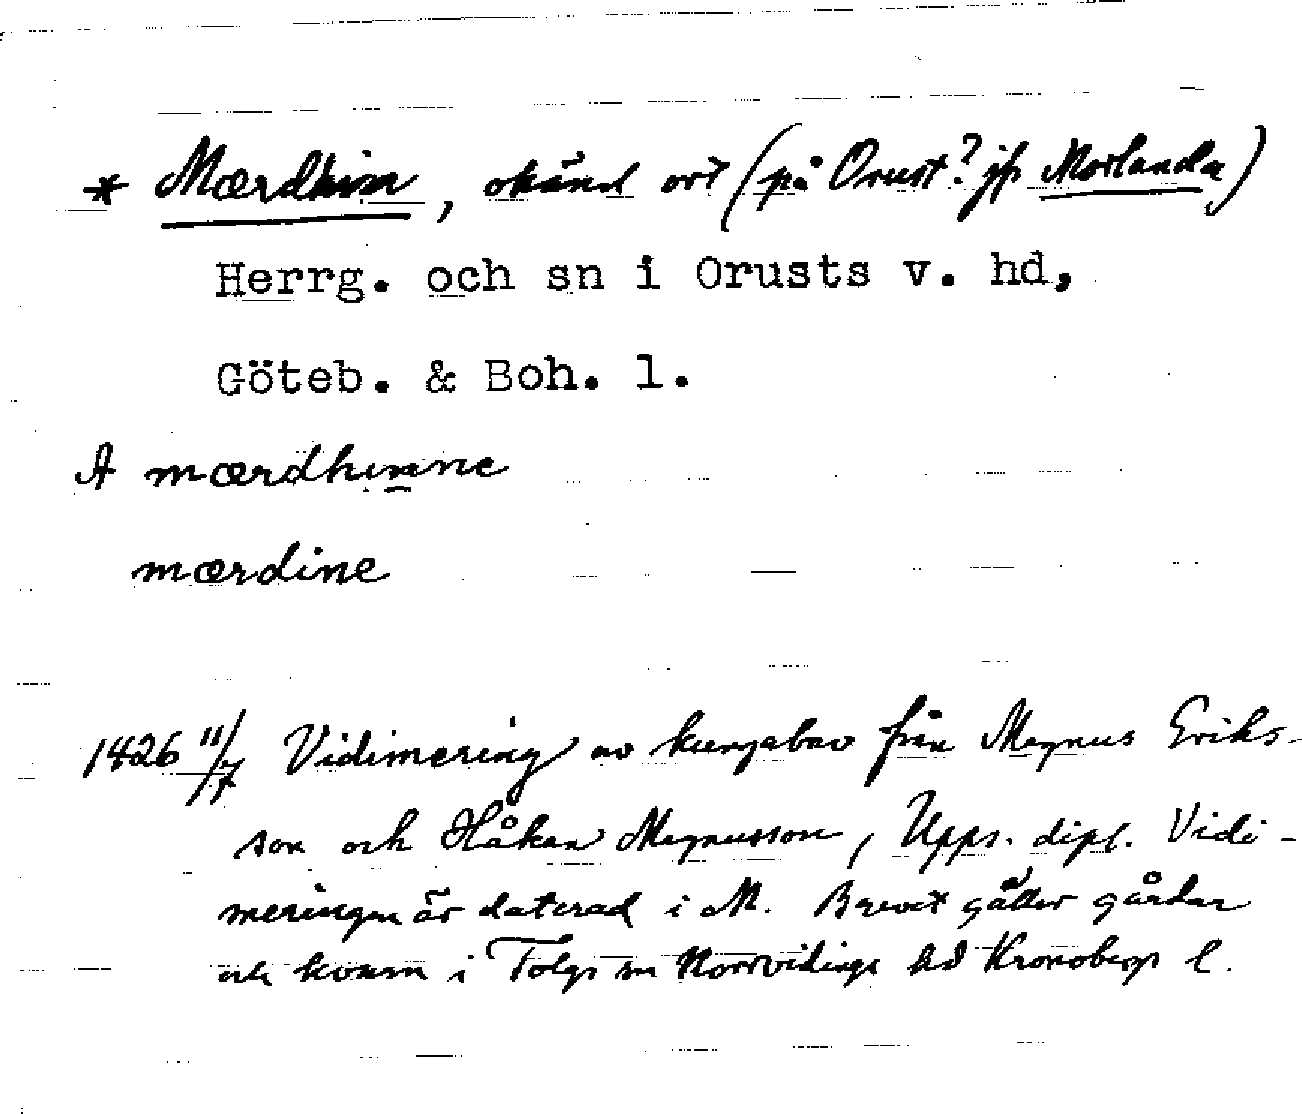 * Mærdhina, okänd ort (på Orust? jfr Morlanda)
Herrg. och sn i Orusts v. hd,
Göteb. & Boh. l.
A mærdhinne
mærdine
1426 11/7 Vidimering av kungabrev från Magnus Eriks-
son och Håkan Magnusson, Upps. dipl. Vidi-
meringen är daterad i M. Brevet gäller gårdar
och kvarn i Tolgs sn Norrvidinge hd Kronobergs l.